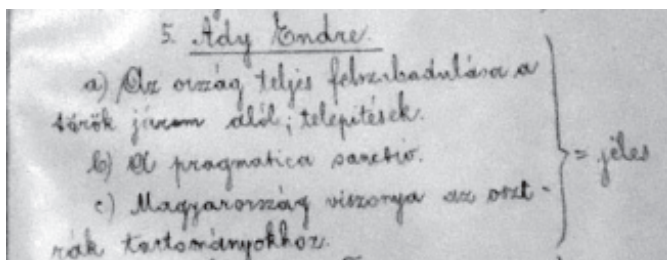 5. Ady Endre.
a) Az ország teljes felszabadulása a
török járom alól; telepítések.
b) A pragmatica sanctió.
c) Magyarország viszonya az oszt-
rák tartományokhoz.
= jeles